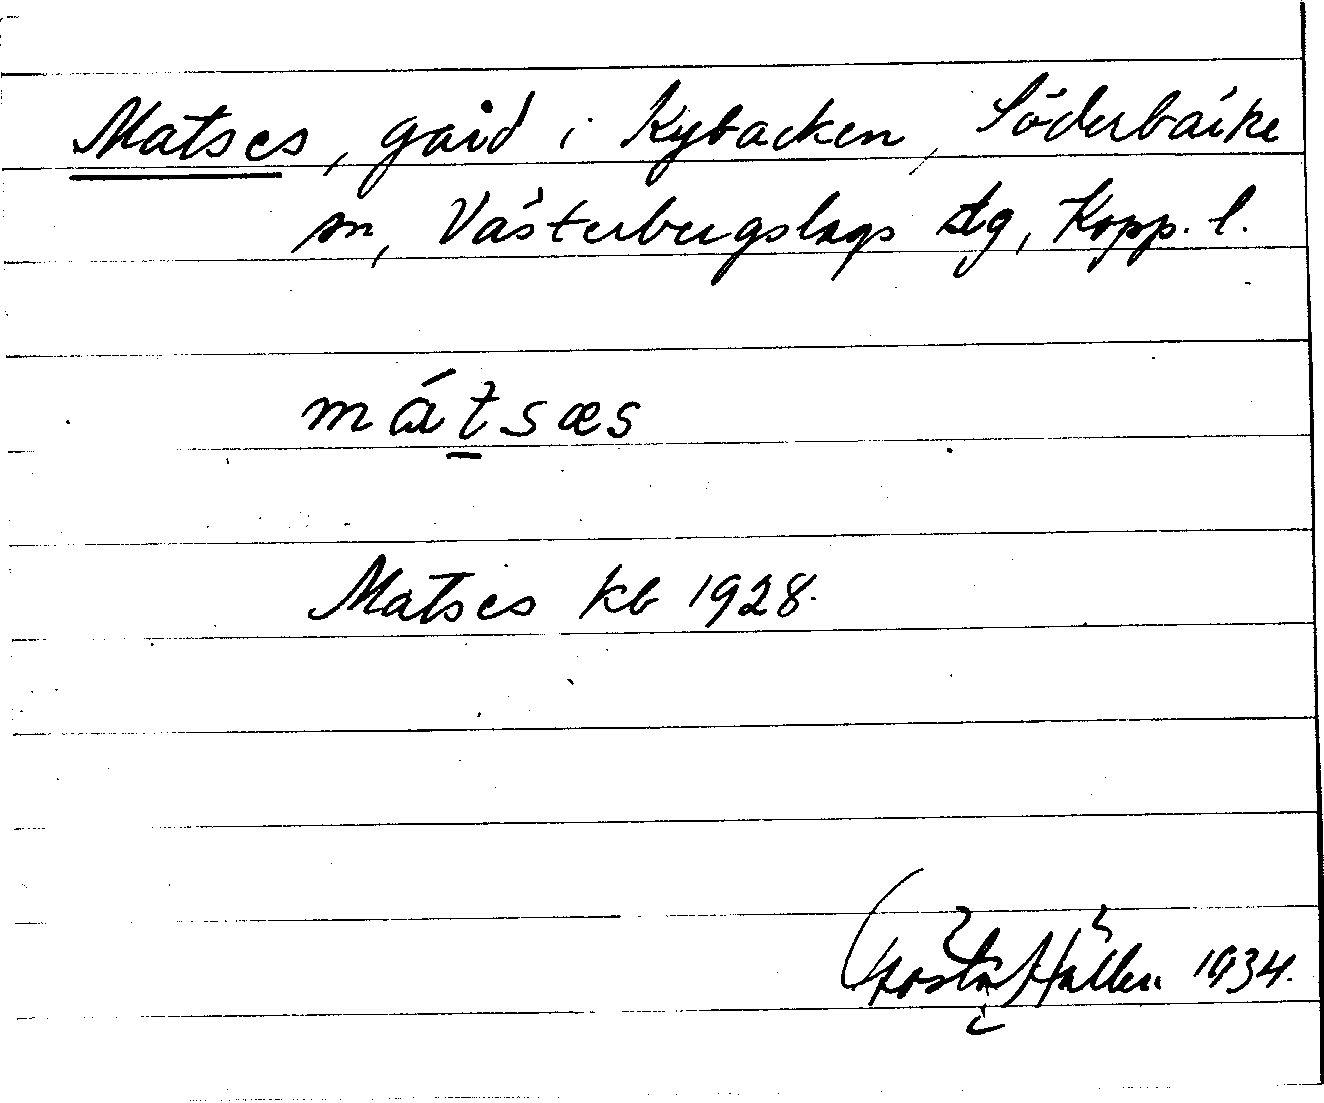 Matses, gård i Kybacken, Söderbärke
sn, Västerbergslags dg, Kopp. l.
mátsæs
Matses kb 1928.
Gösta Hallén 1934.